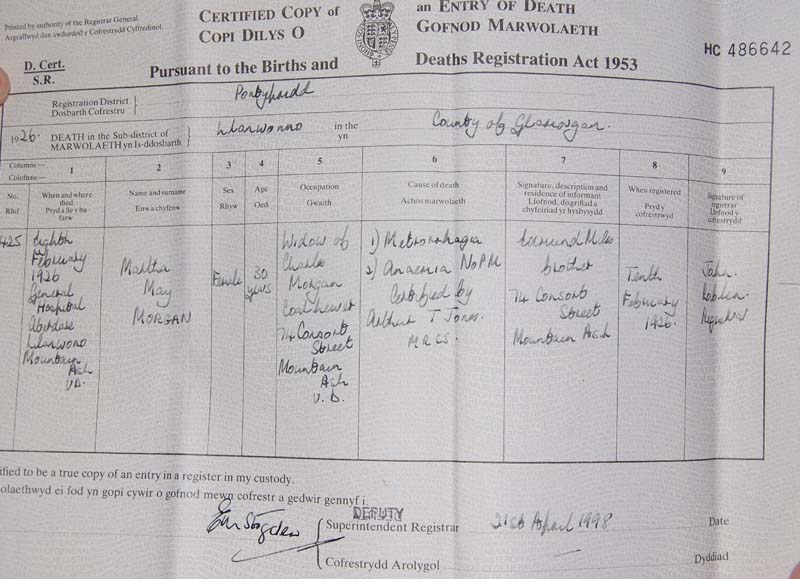 Printed by authority of the Registrar General.
Argraffwyd dan awdurdod y Cofrestrydd Cyffredinol.
CERTIFIED COPY of
COPI DILYS O
an ENTRY OF DEATH
GOFNOD MARWOLAETH
D. Cert.
S.R.
Pursuant to the Births and
Deaths Registration Act 1953
HC 486642
Registration District
Dosbarth Cofrestru
Pontypridd
1926. DEATH in the Sub-district of
MARWOLAETH yn Is-ddosbarth
Llanwonno
in the
yn
County of Glamorgan.
Columns:—
Colofnau:—
1
2
3
4
5
6
7
8
9
No.
Rhif
When and where
died
Pryd a lle y bu
farw
Name and surname
Enw a chyfenw
Sex
Rhyw
Age
Oed
Occupation
Gwaith
Cause of death
Achos marwolaeth
Signature, description and
residence of informant
Llofnod, disgrifiad a
chyfeiriad yr hysbysydd
When registered
Pryd y
cofrestrwyd
Signature of
registrar
Llofnod y
cofrestrydd
425
Eighth
February
1926
General
Hospital
Aberdare
Llanwono
Mountain
Ash
U.D.
Martha
May
MORGAN
Female
30
years
Widow of
Charles
Morgan
Coalhewer
74 Consort
Street
Mountain
Ash
U.D.
1) Metrorrhagia
2) Anaemia No PM
Certified by
Arthur T Jones.
MRCS.
Edmund Miles
brother
74 Consort
Street
Mountain Ash
Tenth
February
1926.
John
Registrar
ified to be a true copy of an entry in a register in my custody.
olaethwyd ei fod yn gopi cywir o gofnod mewn cofrestr a gedwir gennyf i.
DEPUTY
Superintendent Registrar
21st April 1998
Date
Cofrestrydd Arolygol
—
Dyddiad